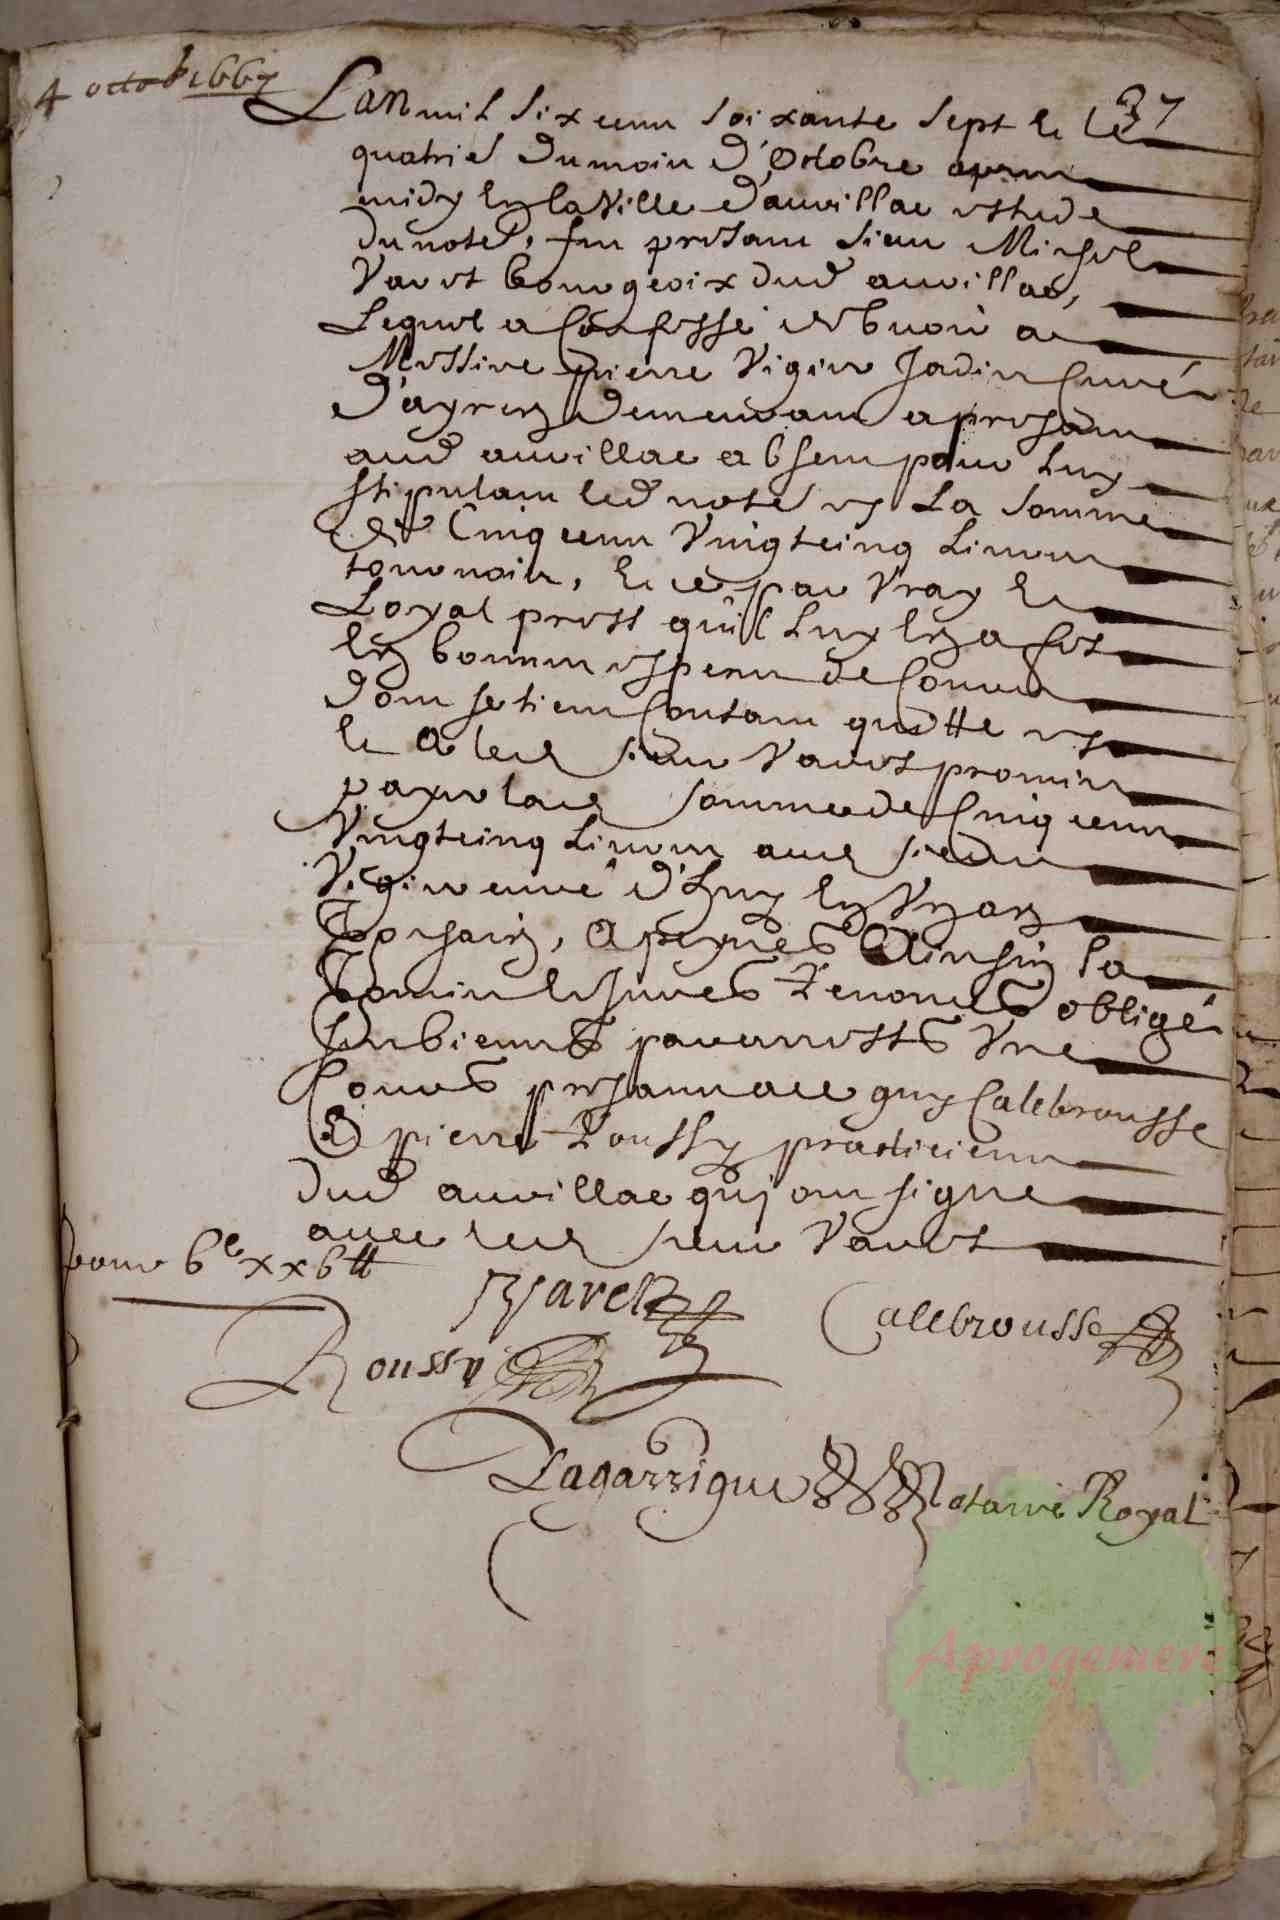 4 octob 1667
37
Lan mil six cens soixante sept et le
quatrie du mois d'Octobre apres
midy en la Ville d'auvillar estude
du note, fut presant sieur Michel
Varet bourgeoix dud auvillar,
Lequel a confessé debuoir a
Messire pierre Vigier Jadis Curé
d'ayren demeurant a presant
aud auvillar absent pour luy
stipulant led note es La somme
de Cinq cens Vingt cinq Livres
tournois, et ce par Vray et
Loyal prest qu'il luy en a fet
en bonnes espesses de Cours
dont se tient Contant quitte es
et a led sieur Varet promis
payer lad somme de Cinq cens
Vingt cinq Livres aud sieur
Vigier curé d'huy en Vn an
prochain, a peynes Ainsin la
promis et Jures Renonces obligé
ses biens par au rests Vne
Cours presans mes guy Calebrousse
Et pierre Roussy practiciens
dud auvillar quj ont signe
avec led sieur Varet
pour bᶜ xxb ₶
Varet
Calebrousse
Roussy
Lagarrigue Notaire Royal
Aprogemere